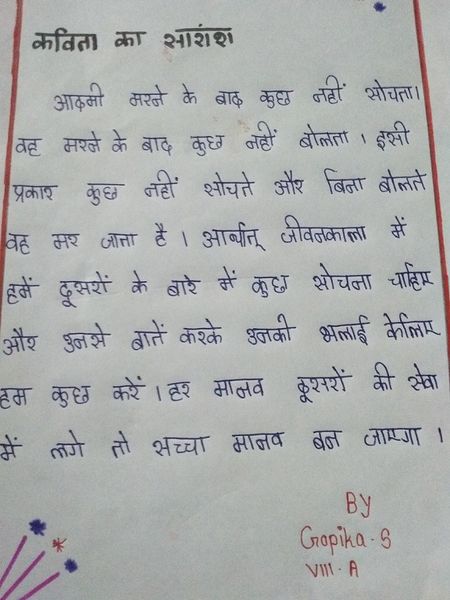 कविता का सारांश
आदमी मरने के बाद कुछ नहीं सोचता।
वह मरने के बाद कुछ नहीं बोलता । इसी
प्रकार कुछ नहीं सोचते और बिना बोलते
वह मर जाता है । अर्थात् जीवनकाल में
हमें दूसरों के बारे में कुछ सोचना चाहिए
और उनसे बातें करके उनकी भलाई केलिए
हम कुछ करें । हर मानव दूसरों की सेवा
में लगे तो सच्चा मानव बन जाएगा ।
BY
Gopika - S
VIII - A